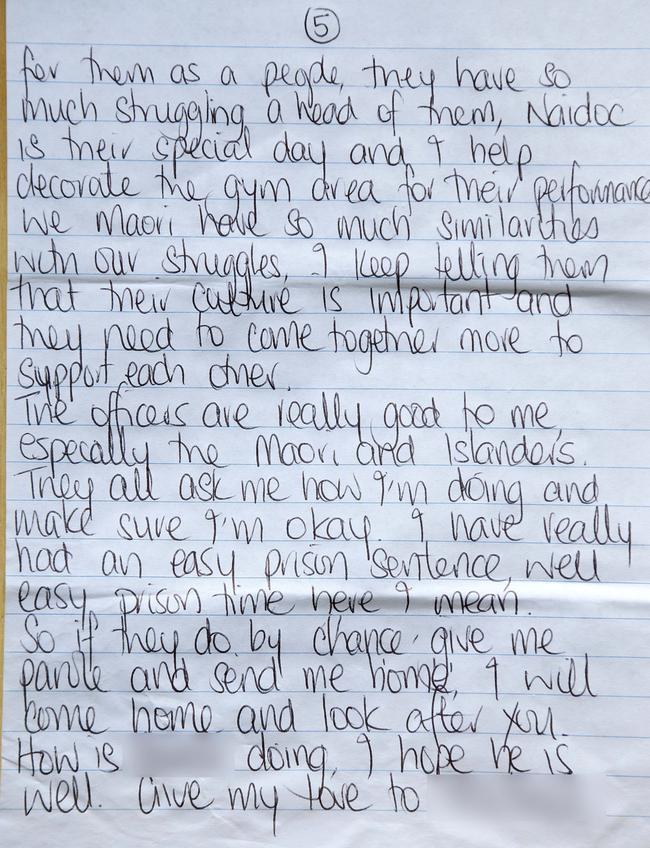 5
for them as a people, they have so
much struggling a head of them, Naidoc
is their special day and I help
decorate the gym area for their performance
We Maori have so much similarities
with our struggles, I keep telling them
that their culture is important and
they need to come together more to
support each other.
The officers are really good to me,
especially the Maori and Islanders.
They all ask me how I'm doing and
make sure I'm okay. I have really
had an easy prison sentence, well
easy prison time here I mean.
So if they do by chance give me
parole and send me home, I will
come home and look after you.
How is doing, I hope he is
well. Give my love to